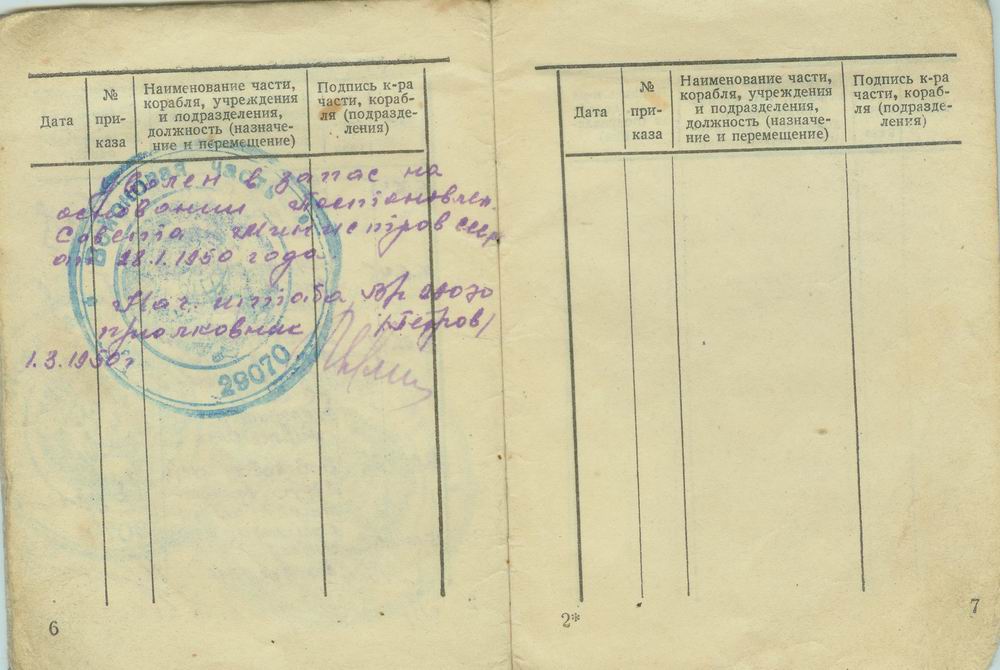 Дата
№
при-
каза
Наименование части,
корабля, учреждения
и подразделения,
должность (назначе-
ние и перемещение)
Подпись к-ра
части, кораб-
ля (подразде-
ления)
Уволен в запас на
основании Постановлен.
Совета Министров СССР
от 28.1.1950 года
Нач. штаба
(Петров)
1.3.1950г
Войсковая часть
29070
6
Дата
№
при-
каза
Наименование части,
корабля, учреждения
и подразделения,
должность (назначе-
ние и перемещение)
Подпись к-ра
части, кораб-
ля (подразде-
ления)
2*
7